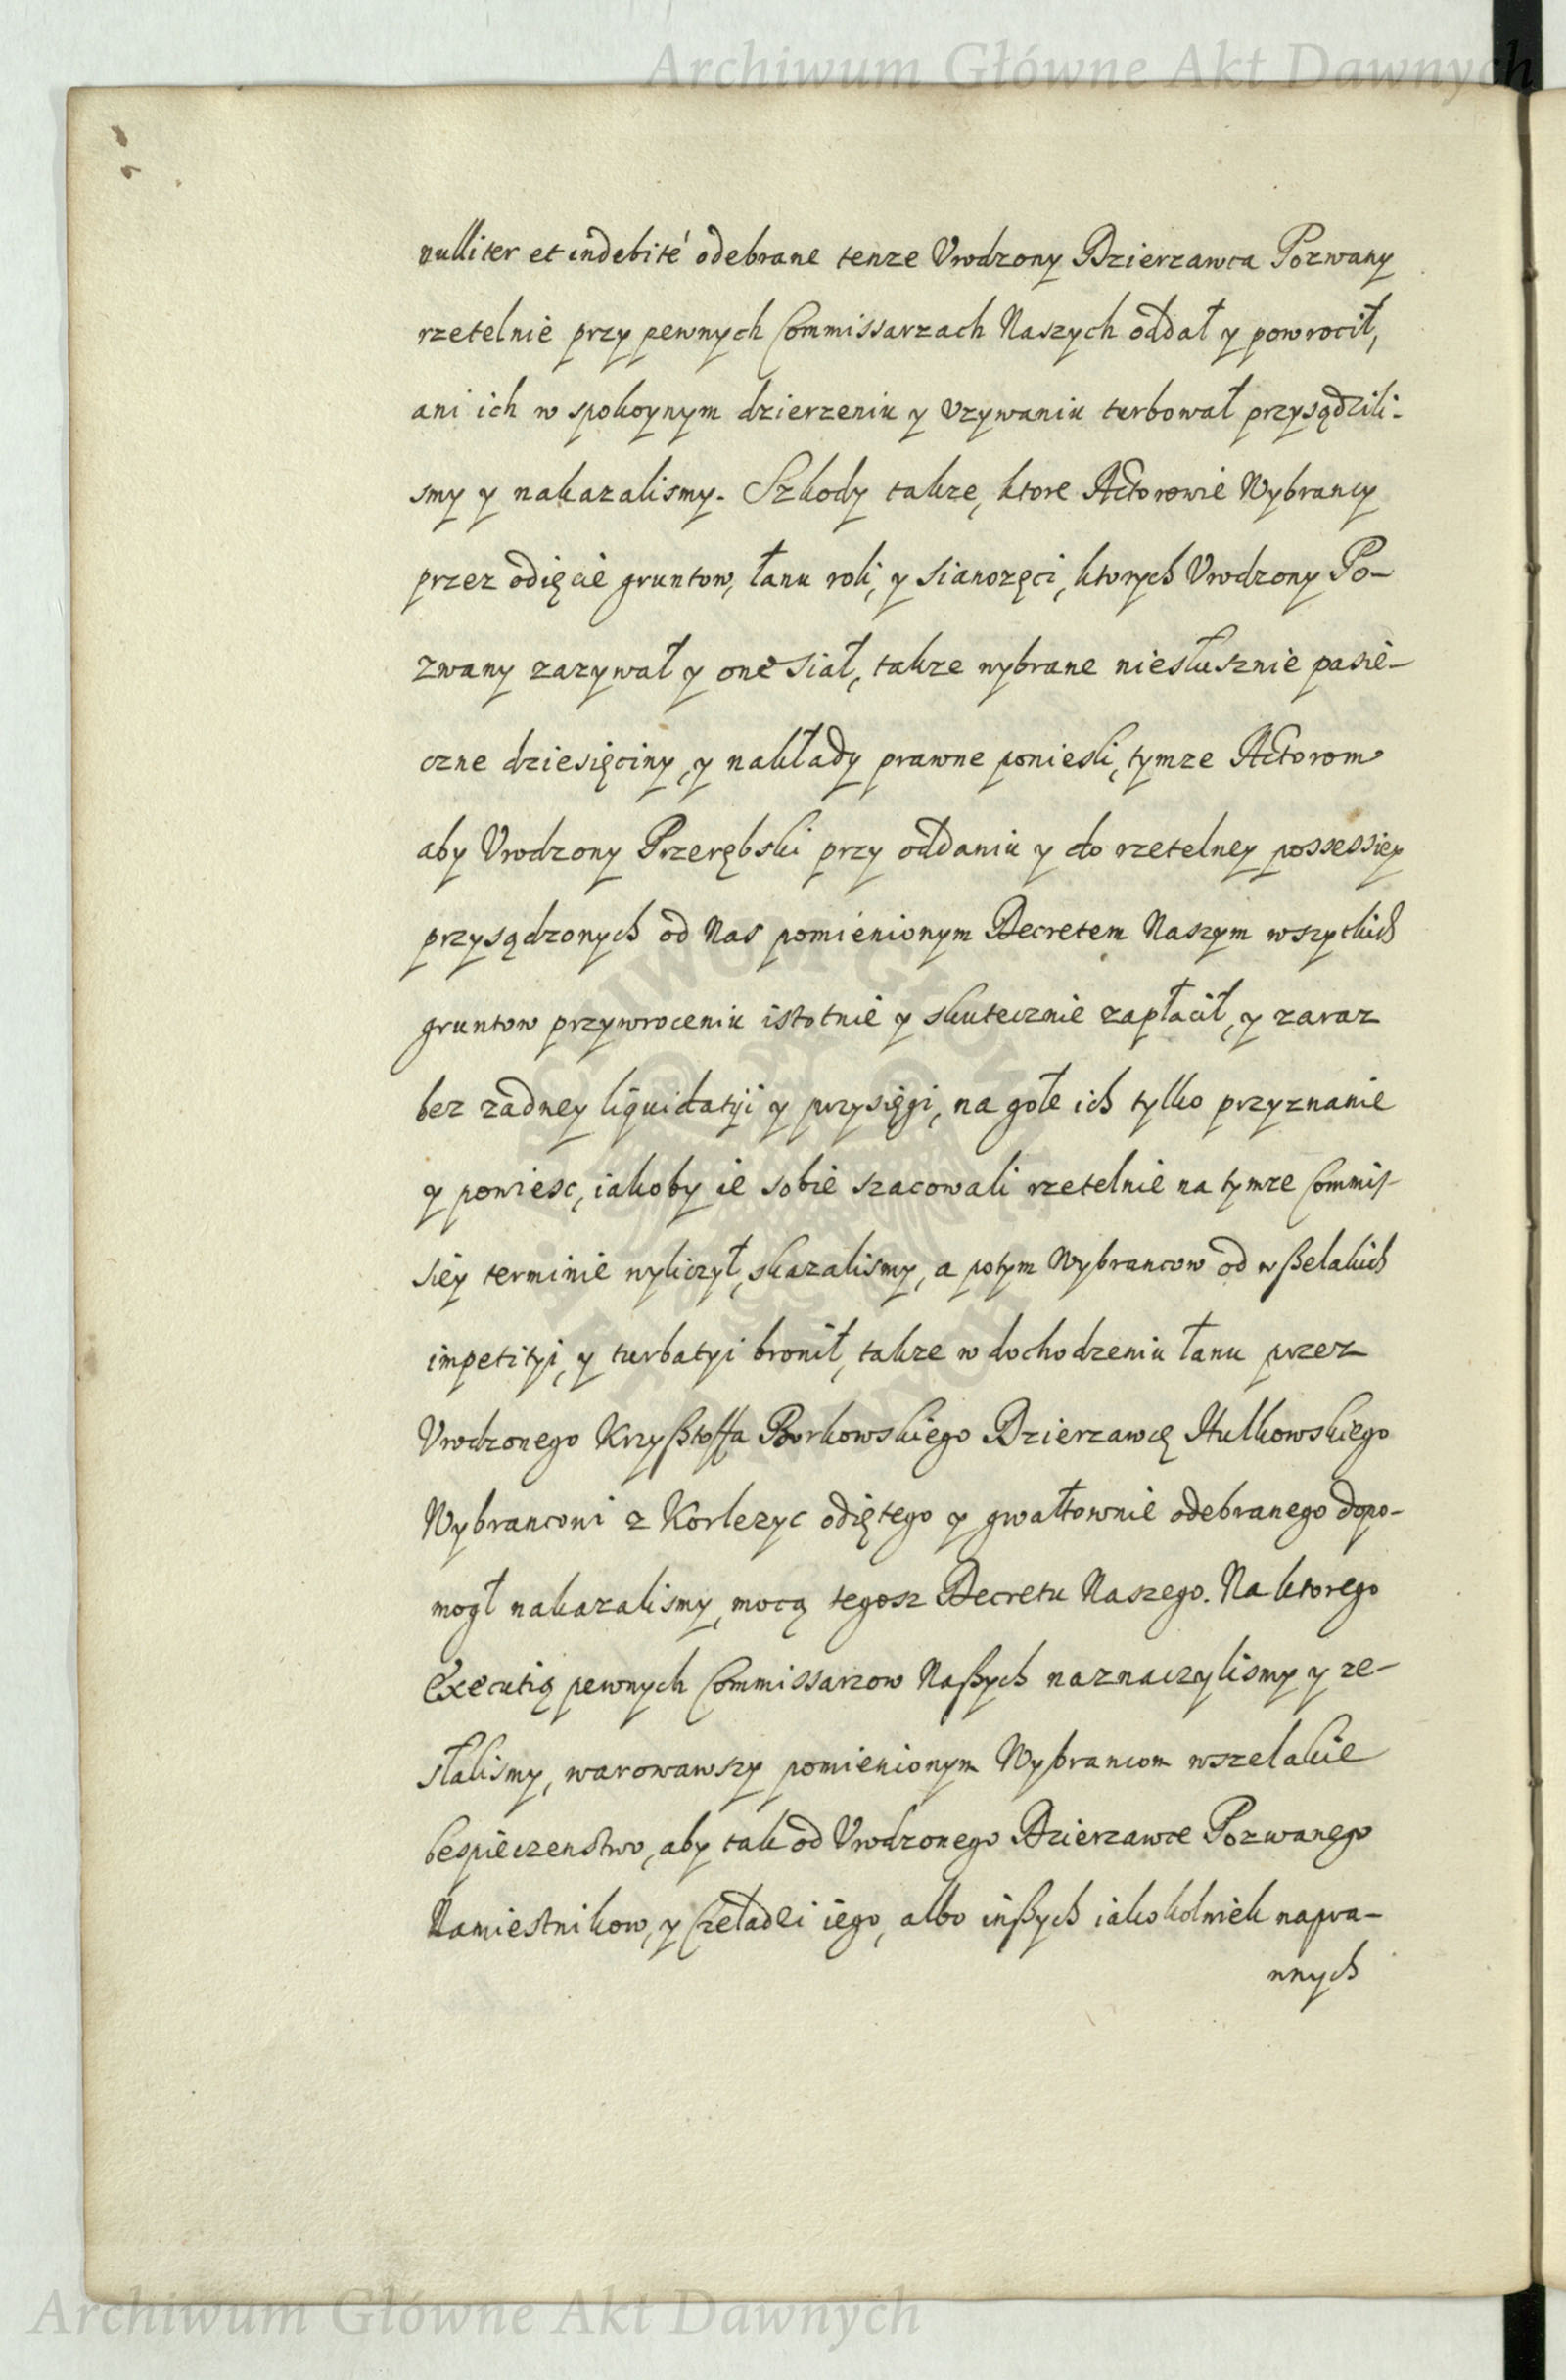 Archiwum Główne Akt Dawnych
nulliter et indebité odebrane tenze Vrodzony Dzierzawca Pozwany
rzetelnie przy pewnych Commissarzach Naszych oddał y powrocił,
ani ich w spokoynym dzierzeniu y Vzywaniu turbował przysądzili-
smy y nakazalismy. Szkody takze, ktore Actorowie Wybrancy
przez odięcie gruntow, łanu roli, y sianozęci, ktorych Vrodzony Po-
zwany zazywał y one siał, takze wybrane niesłusznie pasie-
czne dziesięciny, y nakłady prawne poniesli, tymze Actorom
aby Vrodzony Przerębski przy oddaniu y do rzetelney possessiey
przysądzonych od Nas pomienionym Decretem Naszym wszytkich
gruntow przywroceniu istotnie y skutecznie zapłacił, y zaraz
bez zadney liquidatÿi y przysięgi, na gołe ich tylko przyznanie
y powiesc, iakoby ie sobie szacowali rzetelnie na tymze Commis-
siey terminie wyliczył, skazalismy, a potym Wybrancow od wßelakich
impetityi, y turbatyi bronił, takze w dochodzeniu łanu przez
Vrodzonego Krzyßtoffa Borkowskiego Dzierzawcę Hutkowskiego
Wybrancowi z Korlezyc odiętego y gwałtownie odebranego dopo-
mogł nakazalismy, mocą tegosz Decretu Naszego. Na ktorego
Executią pewnych Commissarzow Naßych naznaczylismy y ze-
słalismy, warowawszy pomienionym Wybrancom wszelakie
bespieczenstwo, aby tak od Vrodzonego Dzierzawce Pozwanego
Namiestnikow, y Czeladzi iego, albo inßych iakokolwiek napra-
wnych
Archiwum Główne Akt Dawnych